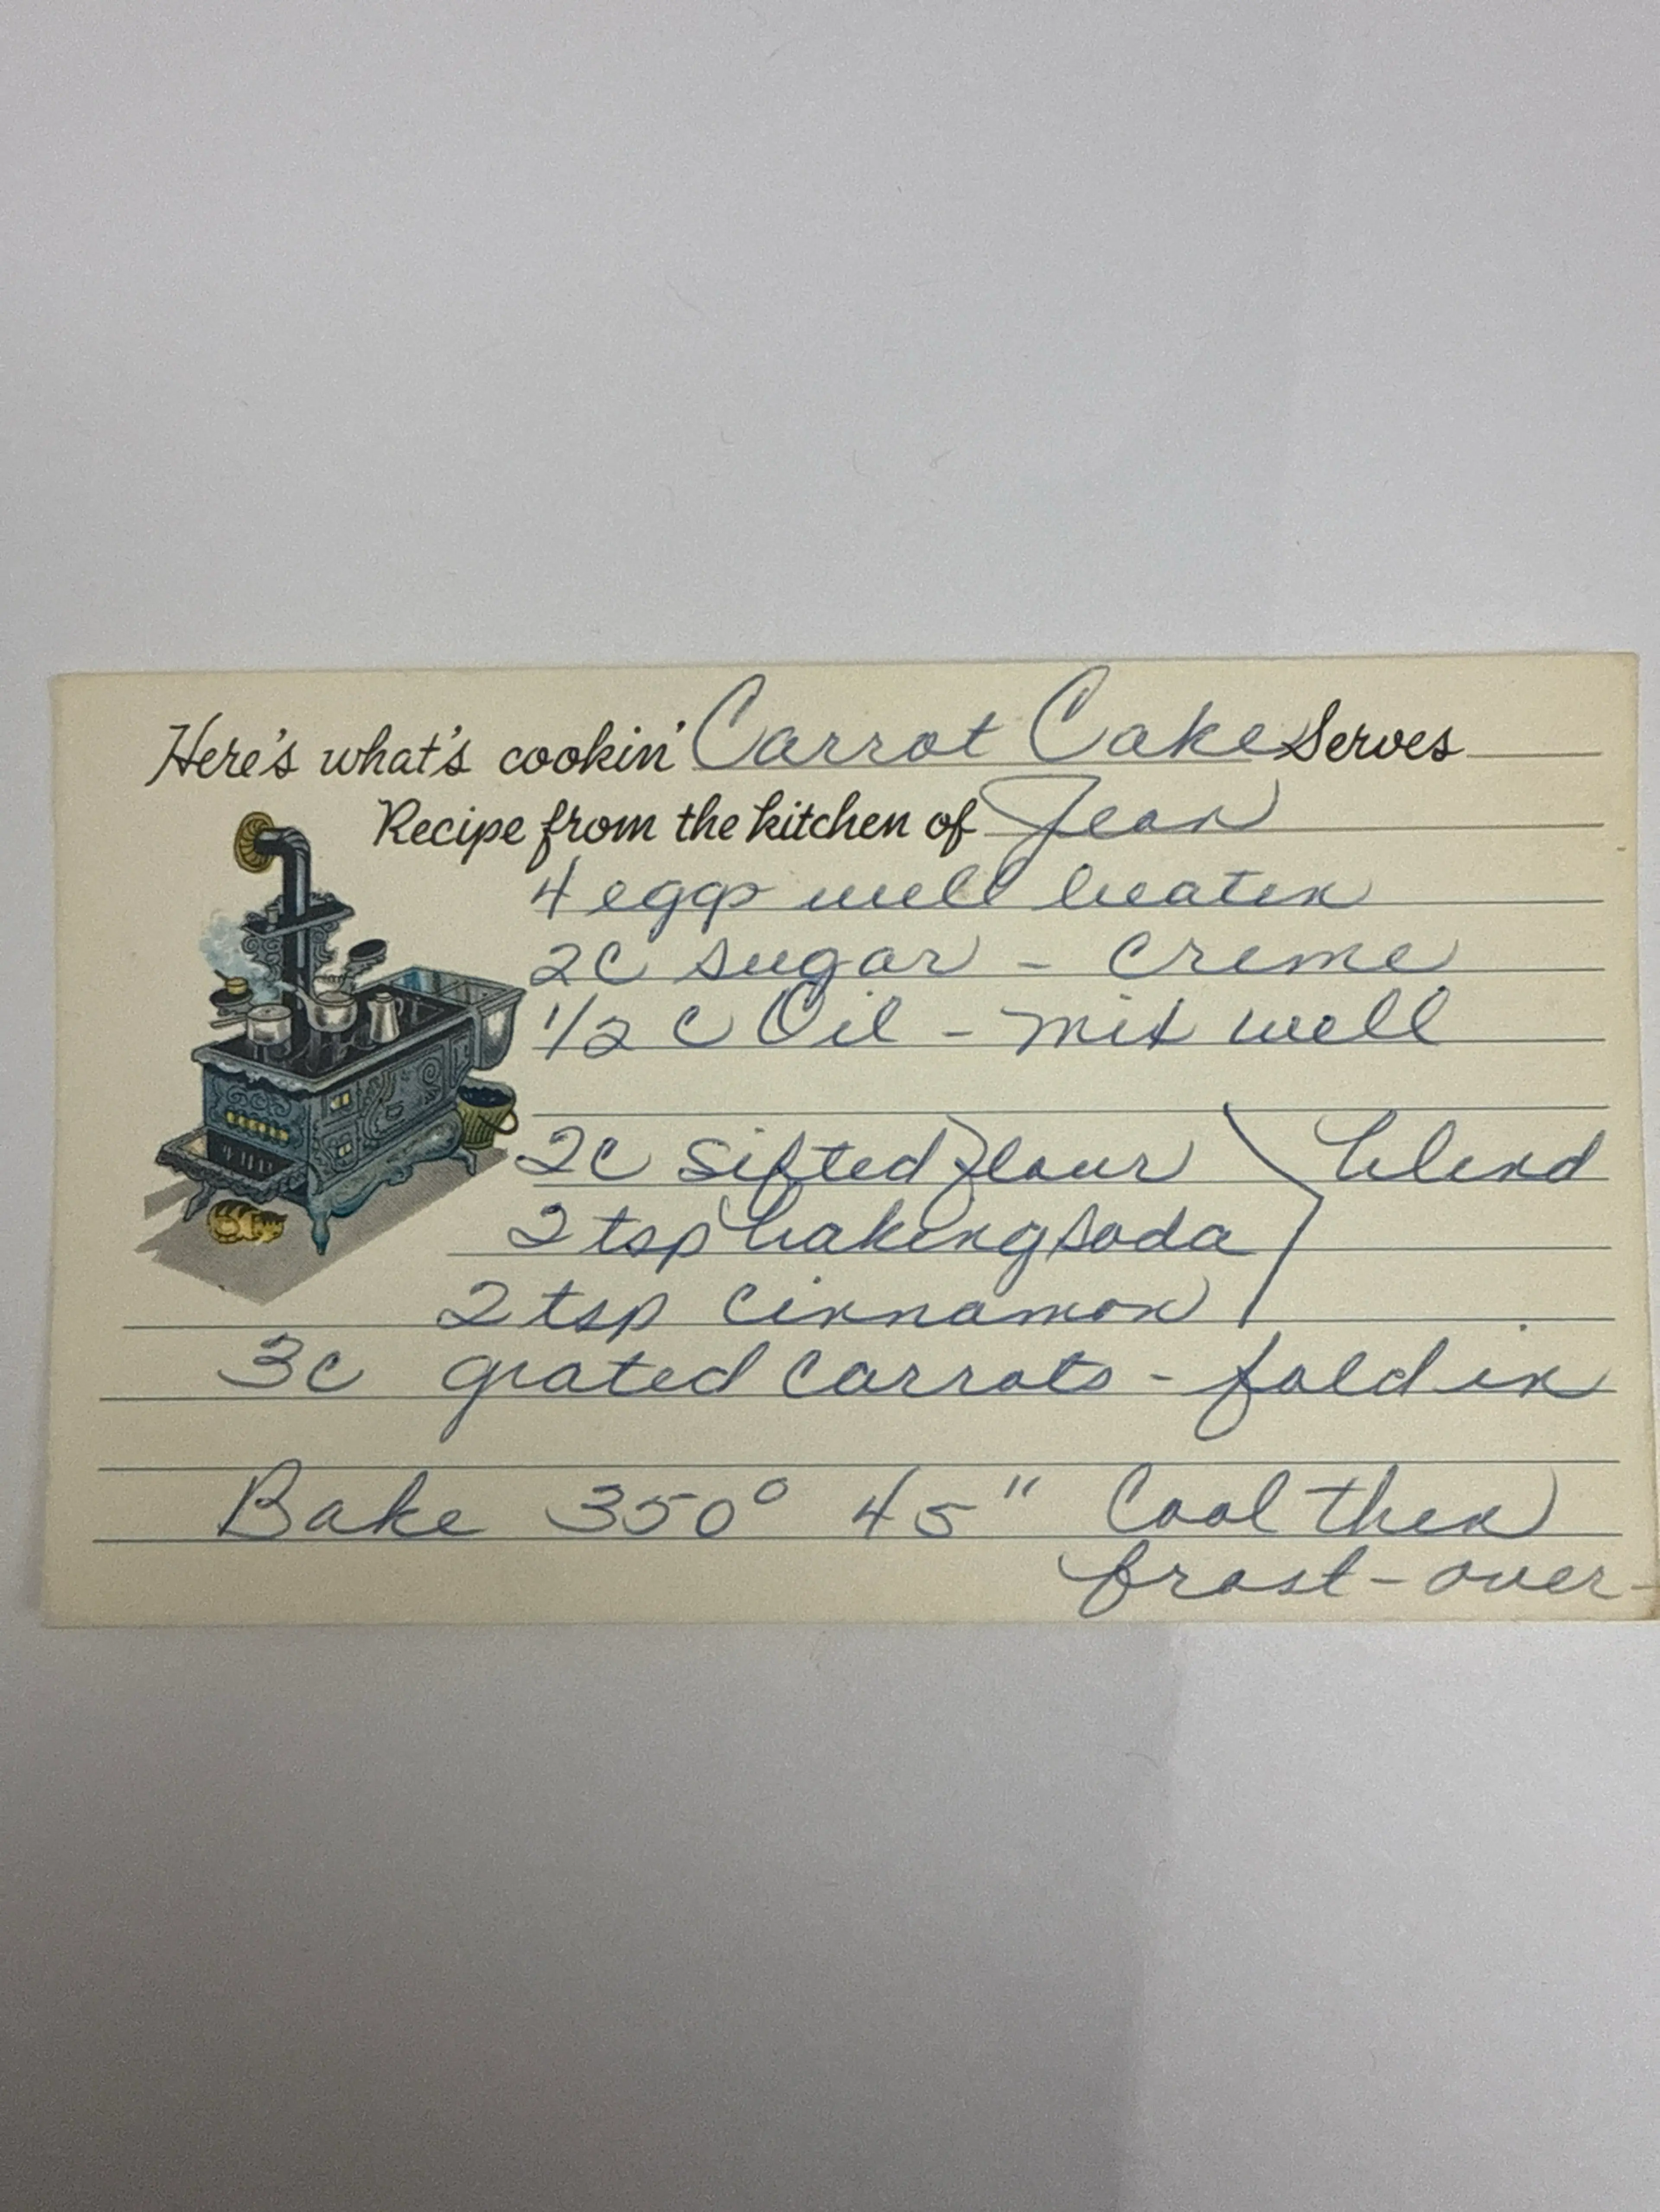 Here's what's cookin' Carrot Cake Serves
Recipe from the kitchen of Jean
4 eggs well beaten
2c sugar - creme
1/2 c Oil - mix well
2c sifted flour } blend
2 tsp baking soda
2 tsp cinnamon
3c grated carrots - fold in
Bake 350° 45" Cool then
frost - over -